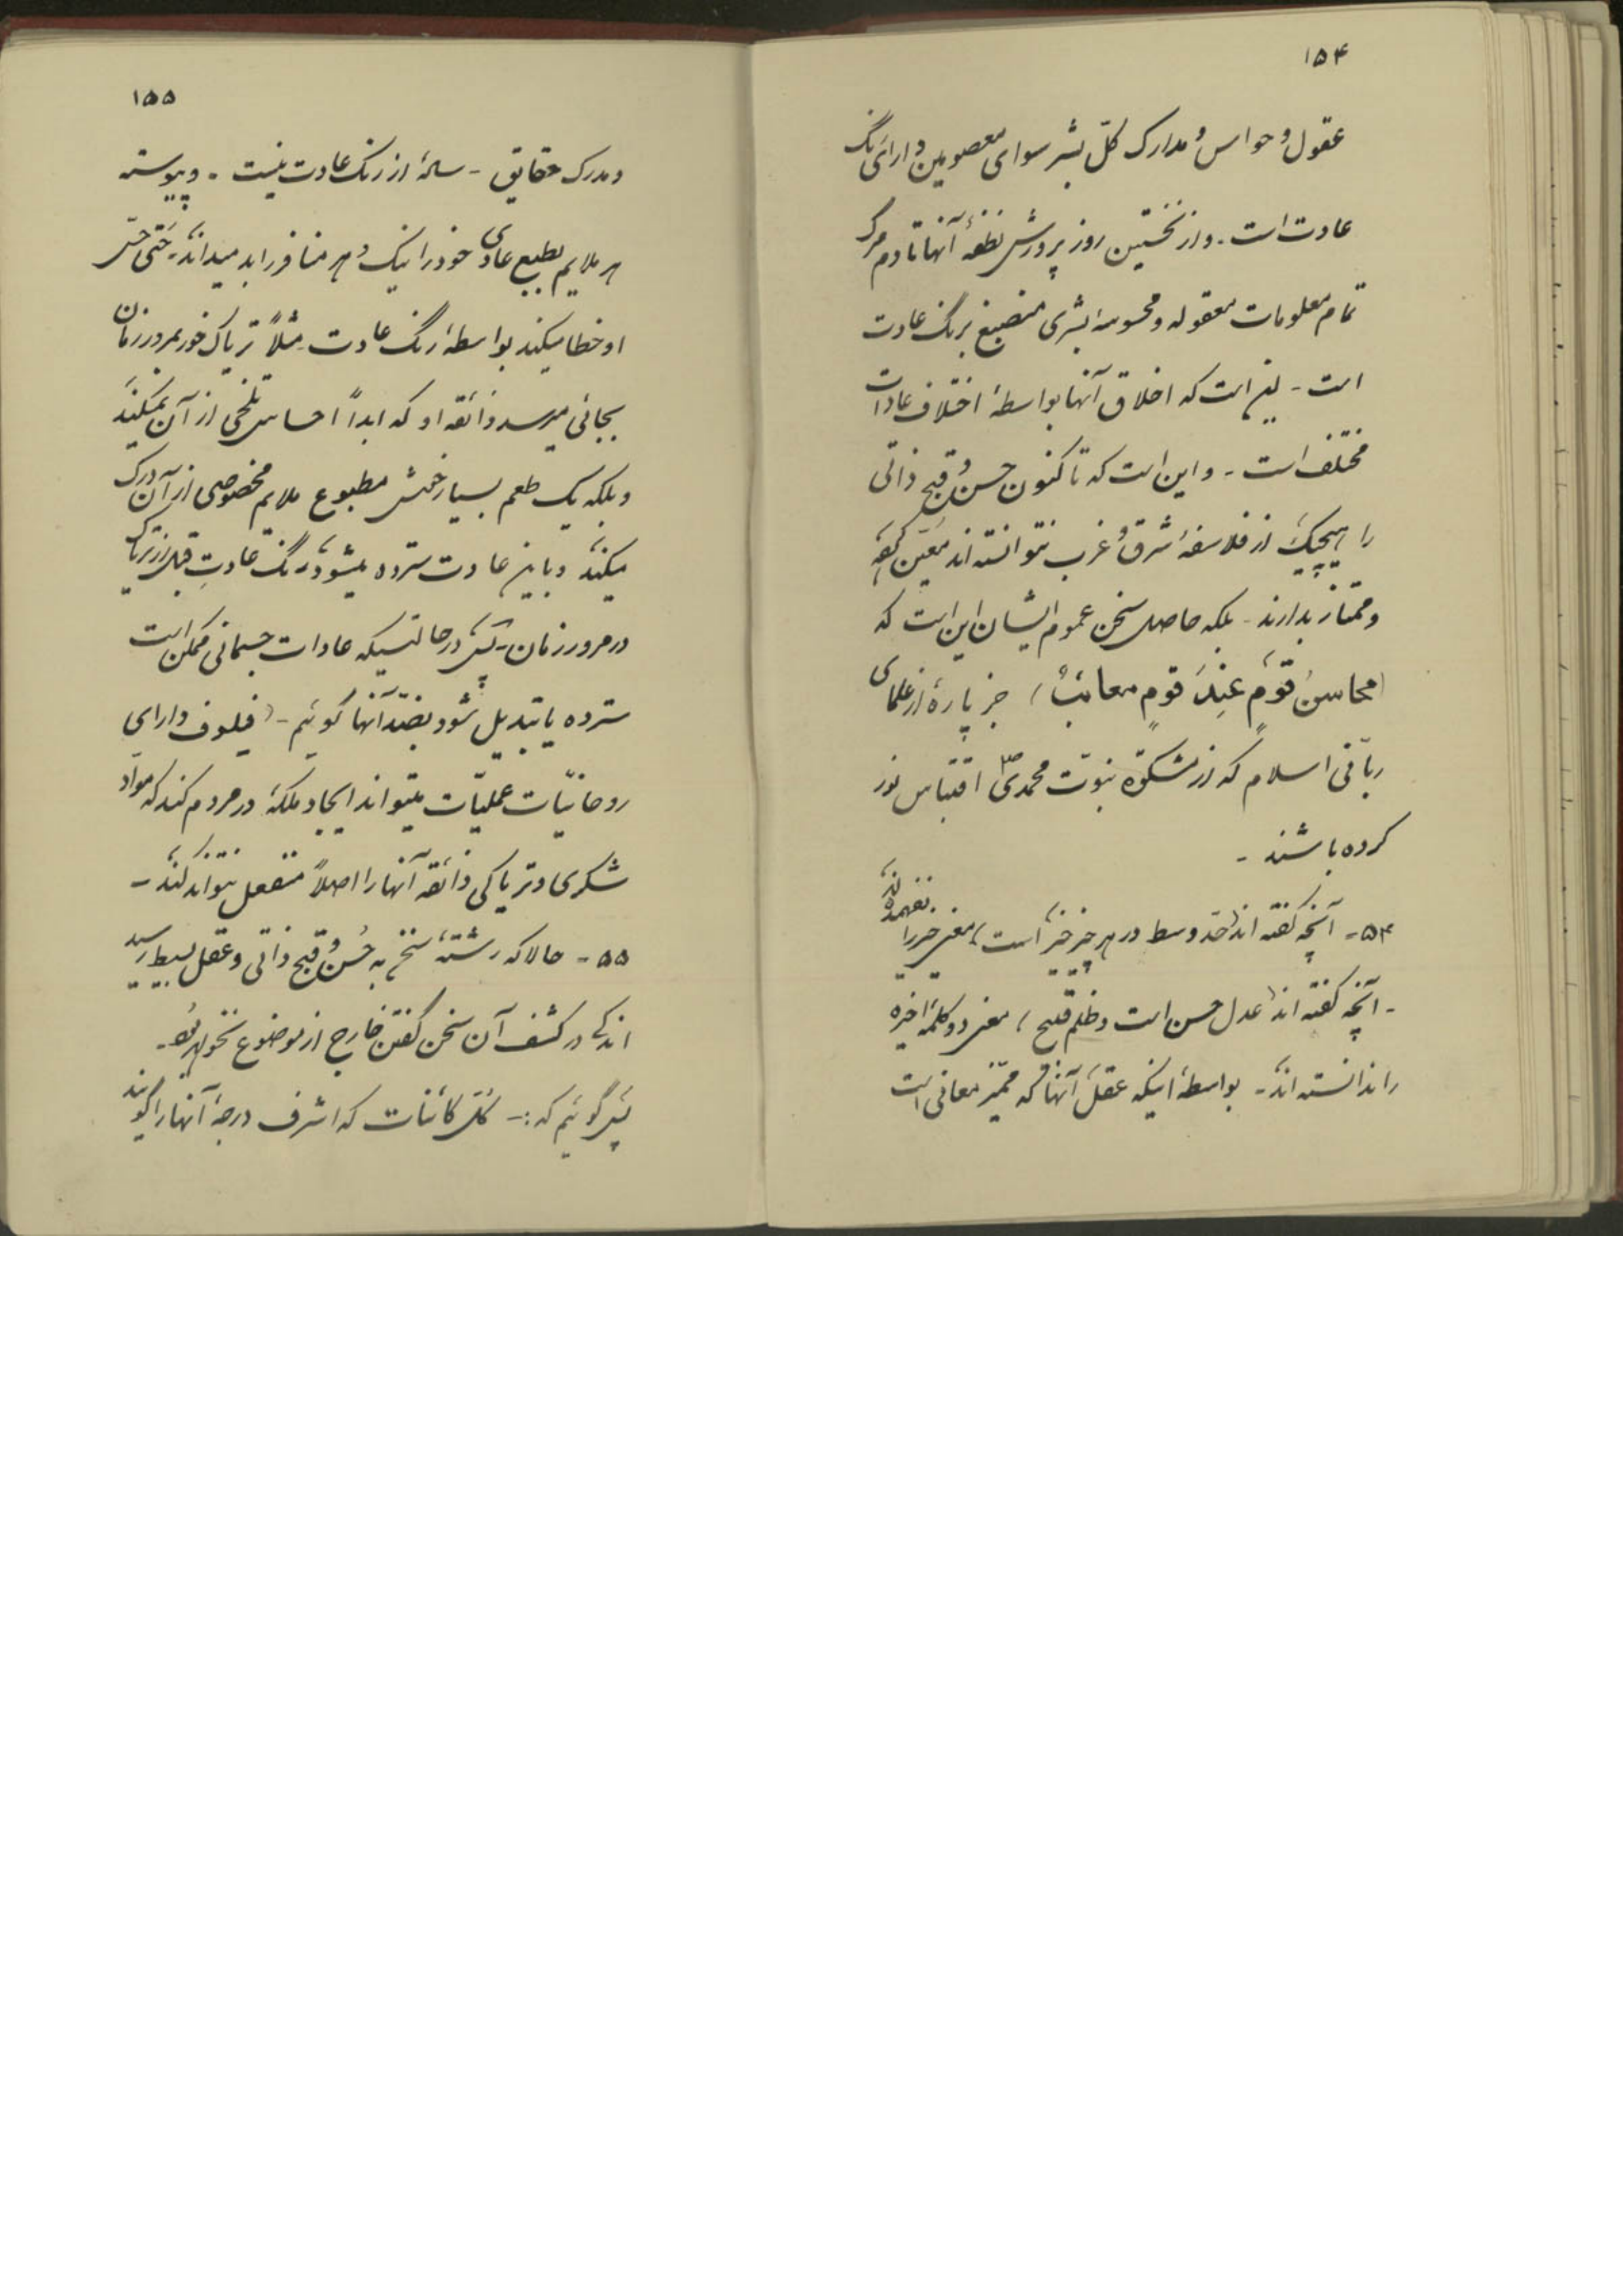 ۱۵۴
عقول و حواس و مدارک کلّ بشر سوای معصومین دارای رنگ
عادت است - و از نخستین روز پرورش نطفهٔ آنها تا دم مرگ
تمام معلومات معقوله و محسوسهٔ بشری منصبغ برنگ عادت
است - این است که اخلاق آنها بواسطهٔ اختلاف عادات
مختلف است - و این است که تا کنون حسن و قبح ذاتی
را هیچیک از فلاسفهٔ شرق و غرب نتوانسته اند معیّن کنند
و ممتاز بدارند - بلکه حاصل سخن عموم ایشان این است که
(محاسنُ قومٍ عِندَ قومٍ معائبُ) جز پارهٔ از علمای
ربّانی اسلام که از مشکوة نبوّت محمدی ص اقتباس نور
کرده باشند -
۵۴ - آنچه گفته اند (حدّ وسط در هر چیز خیر است) معنی خیر را نفهمیده اند
- آنچه گفته اند (عدل حسن است و ظلم قبیح) معنی دو کلمهٔ اخیره
را ندانسته اند - بواسطهٔ اینکه عقل آنها که ممیّز معانی است
۱۵۵
و مدرک حقایق - سالم از رنگ عادت نیست - و پیوسته
هر ملایم بطبع عادی خود را نیک و هر منافر را بد میداند - حتی حسّ
او خطا میکند بواسطهٔ رنگ عادت - مثلاً تریاک خور بمرور زمان
بجائی میرسد ذائقه او که ابداً احساس تلخی از آن نمیکند
و بلکه یک طعم بسیار خوش مطبوع ملایم مخصوصی از آن درک
میکند و باین عادت سترده میشود رنگ عادتِ قبل از تریاک
در مرور زمان - پس در حالتیکه عادات جسمانی ممکن است
سترده یا تبدیل شود بضدّ آنها گوئیم - (فیلسوف دارای
روحانیّات عملیّات میتواند ایجاد ملکهٔ در مردم کند که موادّ
شکری و تریاکی ذائقه آنها را اصلاً منفعل نتواند کند) -
۵۵ - حالا که رشتهٔ سخن به حُسن و قبح ذاتی و عقل بسیط رسید
اندکی در کشف آن سخن گفتن خارج از موضوع نخواهد بود -
پس گوئیم که :- کلّ کائنات که اشرف درجهٔ آنها را گویند